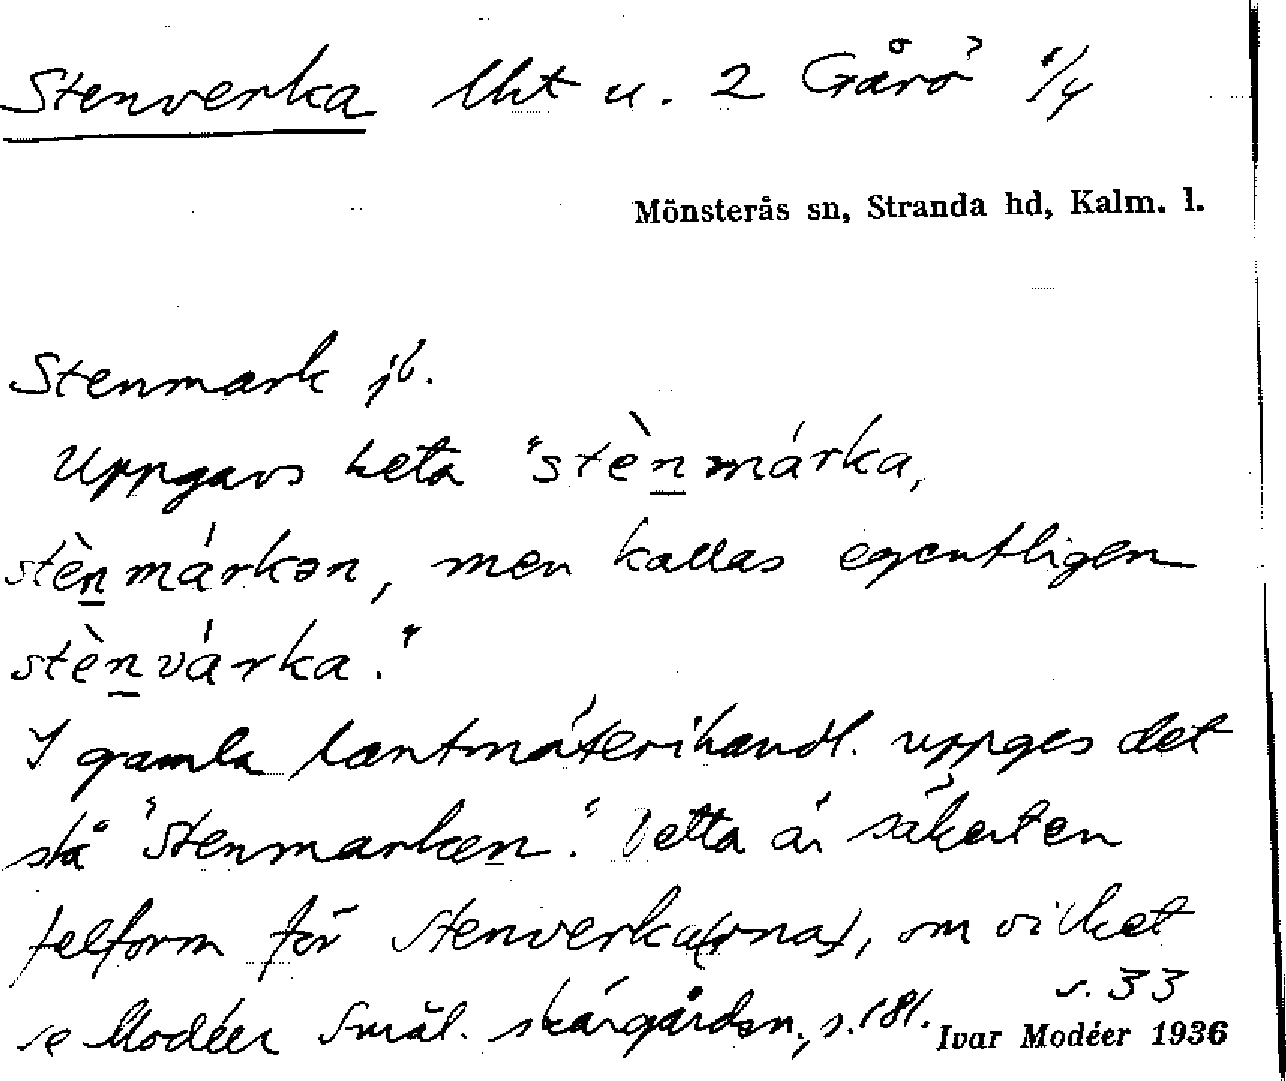 Stenverka lht u. 2 Gårö 1/4
Mönsterås sn, Stranda hd, Kalm. l.
Stenmark jb.
Uppgavs heta "stènmárka,
stènmárkən, men kallas egentligen
stènvárka."
I gamla lantmäterihandl. uppges det
stå "Stenmarken". Detta är säkert en
felform för Stenverka(rna), om vilket
se Modéer Smål. skärgården, s. 181.
s. 33
Ivar Modéer 1936